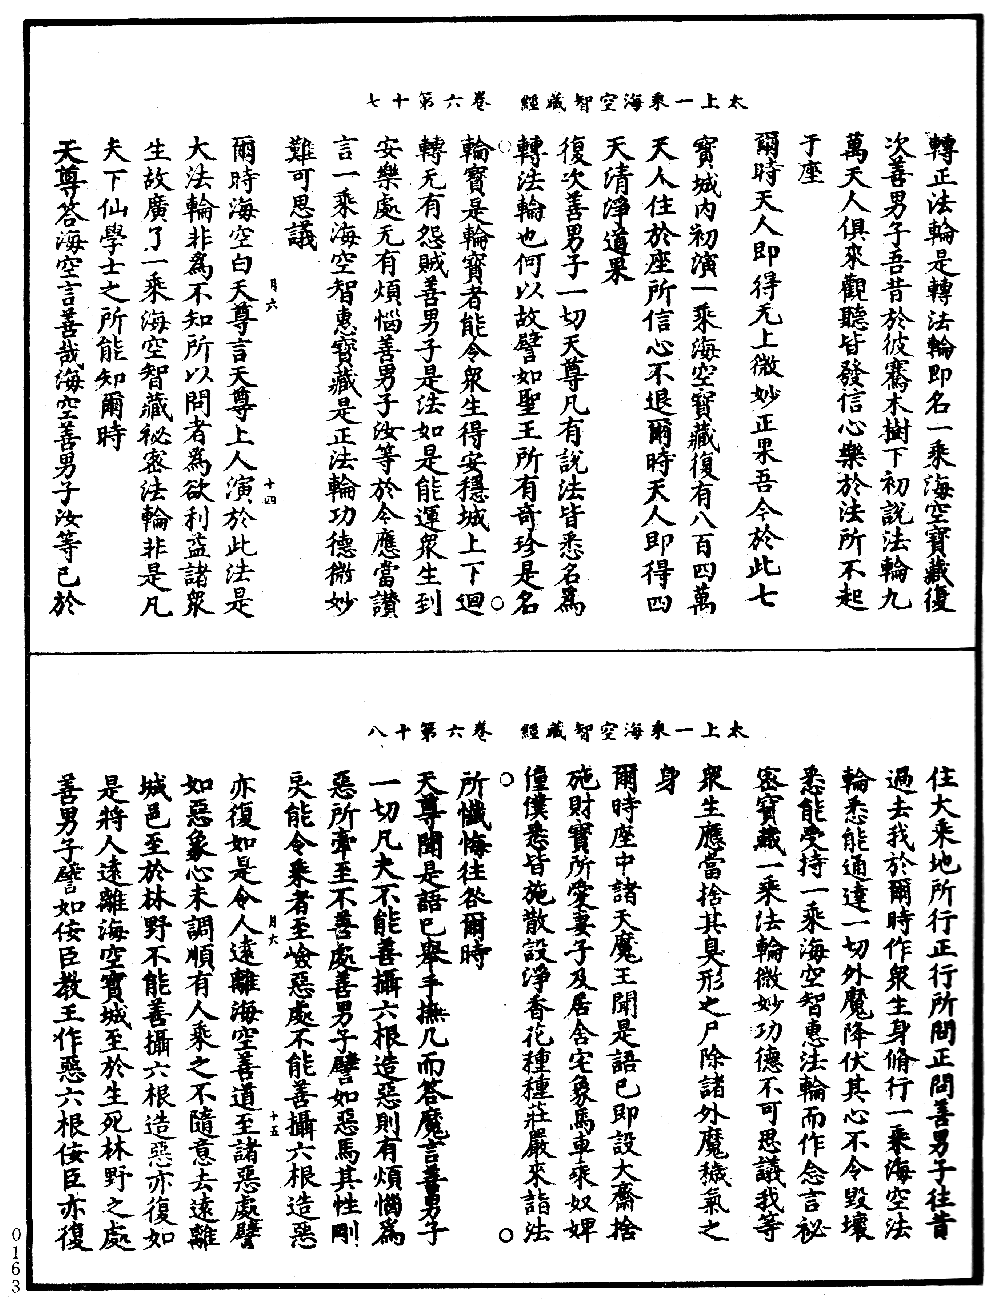 太上一乘海空智藏經　卷六第十七
轉正法輪是轉法輪即名一乘海空寶藏復
次善男子吾昔於彼騫木樹下初說法輪九
萬天人俱來觀聽皆發信心樂於法所不起
于座
爾時天人即得无上微妙正果吾今於此七
寶城内初演一乘海空寶藏復有八百四萬
天人住於座所信心不退爾時天人即得四
天清淨道果
復次善男子一切天尊凡有說法皆悉名爲
轉法輪也何以故譬如聖王所有奇珍是名
輪寶是輪寶者能令衆生得安穩城上下迴
轉无有怨賊善男子是法如是能運衆生到
安樂處无有煩惱善男子汝等於今應當讃
言一乘海空智惠寶藏是正法輪功德微妙
難可思議
月六　十四
爾時海空白天尊言天尊上人演於此法是
大法輪非爲不知所以問者爲欲利益諸衆
生故廣了一乘海空智藏秘密法輪非是凡
夫下仙學士之所能知爾時
天尊答海空言善哉海空善男子汝等已於
太上一乘海空智藏經　卷六第十八
住大乘地所行正行所問正問善男子往昔
過去我於爾時作衆生身脩行一乘海空法
輪悉能通達一切外魔降伏其心不令毀壞
悉能受持一乘海空智惠法輪而作念言祕
密寶藏一乘法輪微妙功德不可思議我等
衆生應當捨其臭形之尸除諸外魔穢氣之
身
爾時座中諸天魔王聞是語已即設大齋捨
施財寶所愛妻子及居舍宅象馬車乘奴婢
僮僕悉皆施散設淨香花種種莊嚴來詣法
所懺悔往咎爾時
天尊聞是語已舉手撫几而答魔言善男子
一切凡夫不能善攝六根造惡則有煩惱爲
惡所牽至不善處善男子譬如惡馬其性剛
戾能令乘者至嶮惡處不能善攝六根造惡
月六　十五
亦復如是令人遠離海空善道至諸惡處譬
如惡象心未調順有人乘之不隨意去遠離
城邑至於林野不能善攝六根造惡亦復如
是將人遠離海空寶城至於生死林野之處
善男子譬如佞臣教王作惡六根佞臣亦復
0163